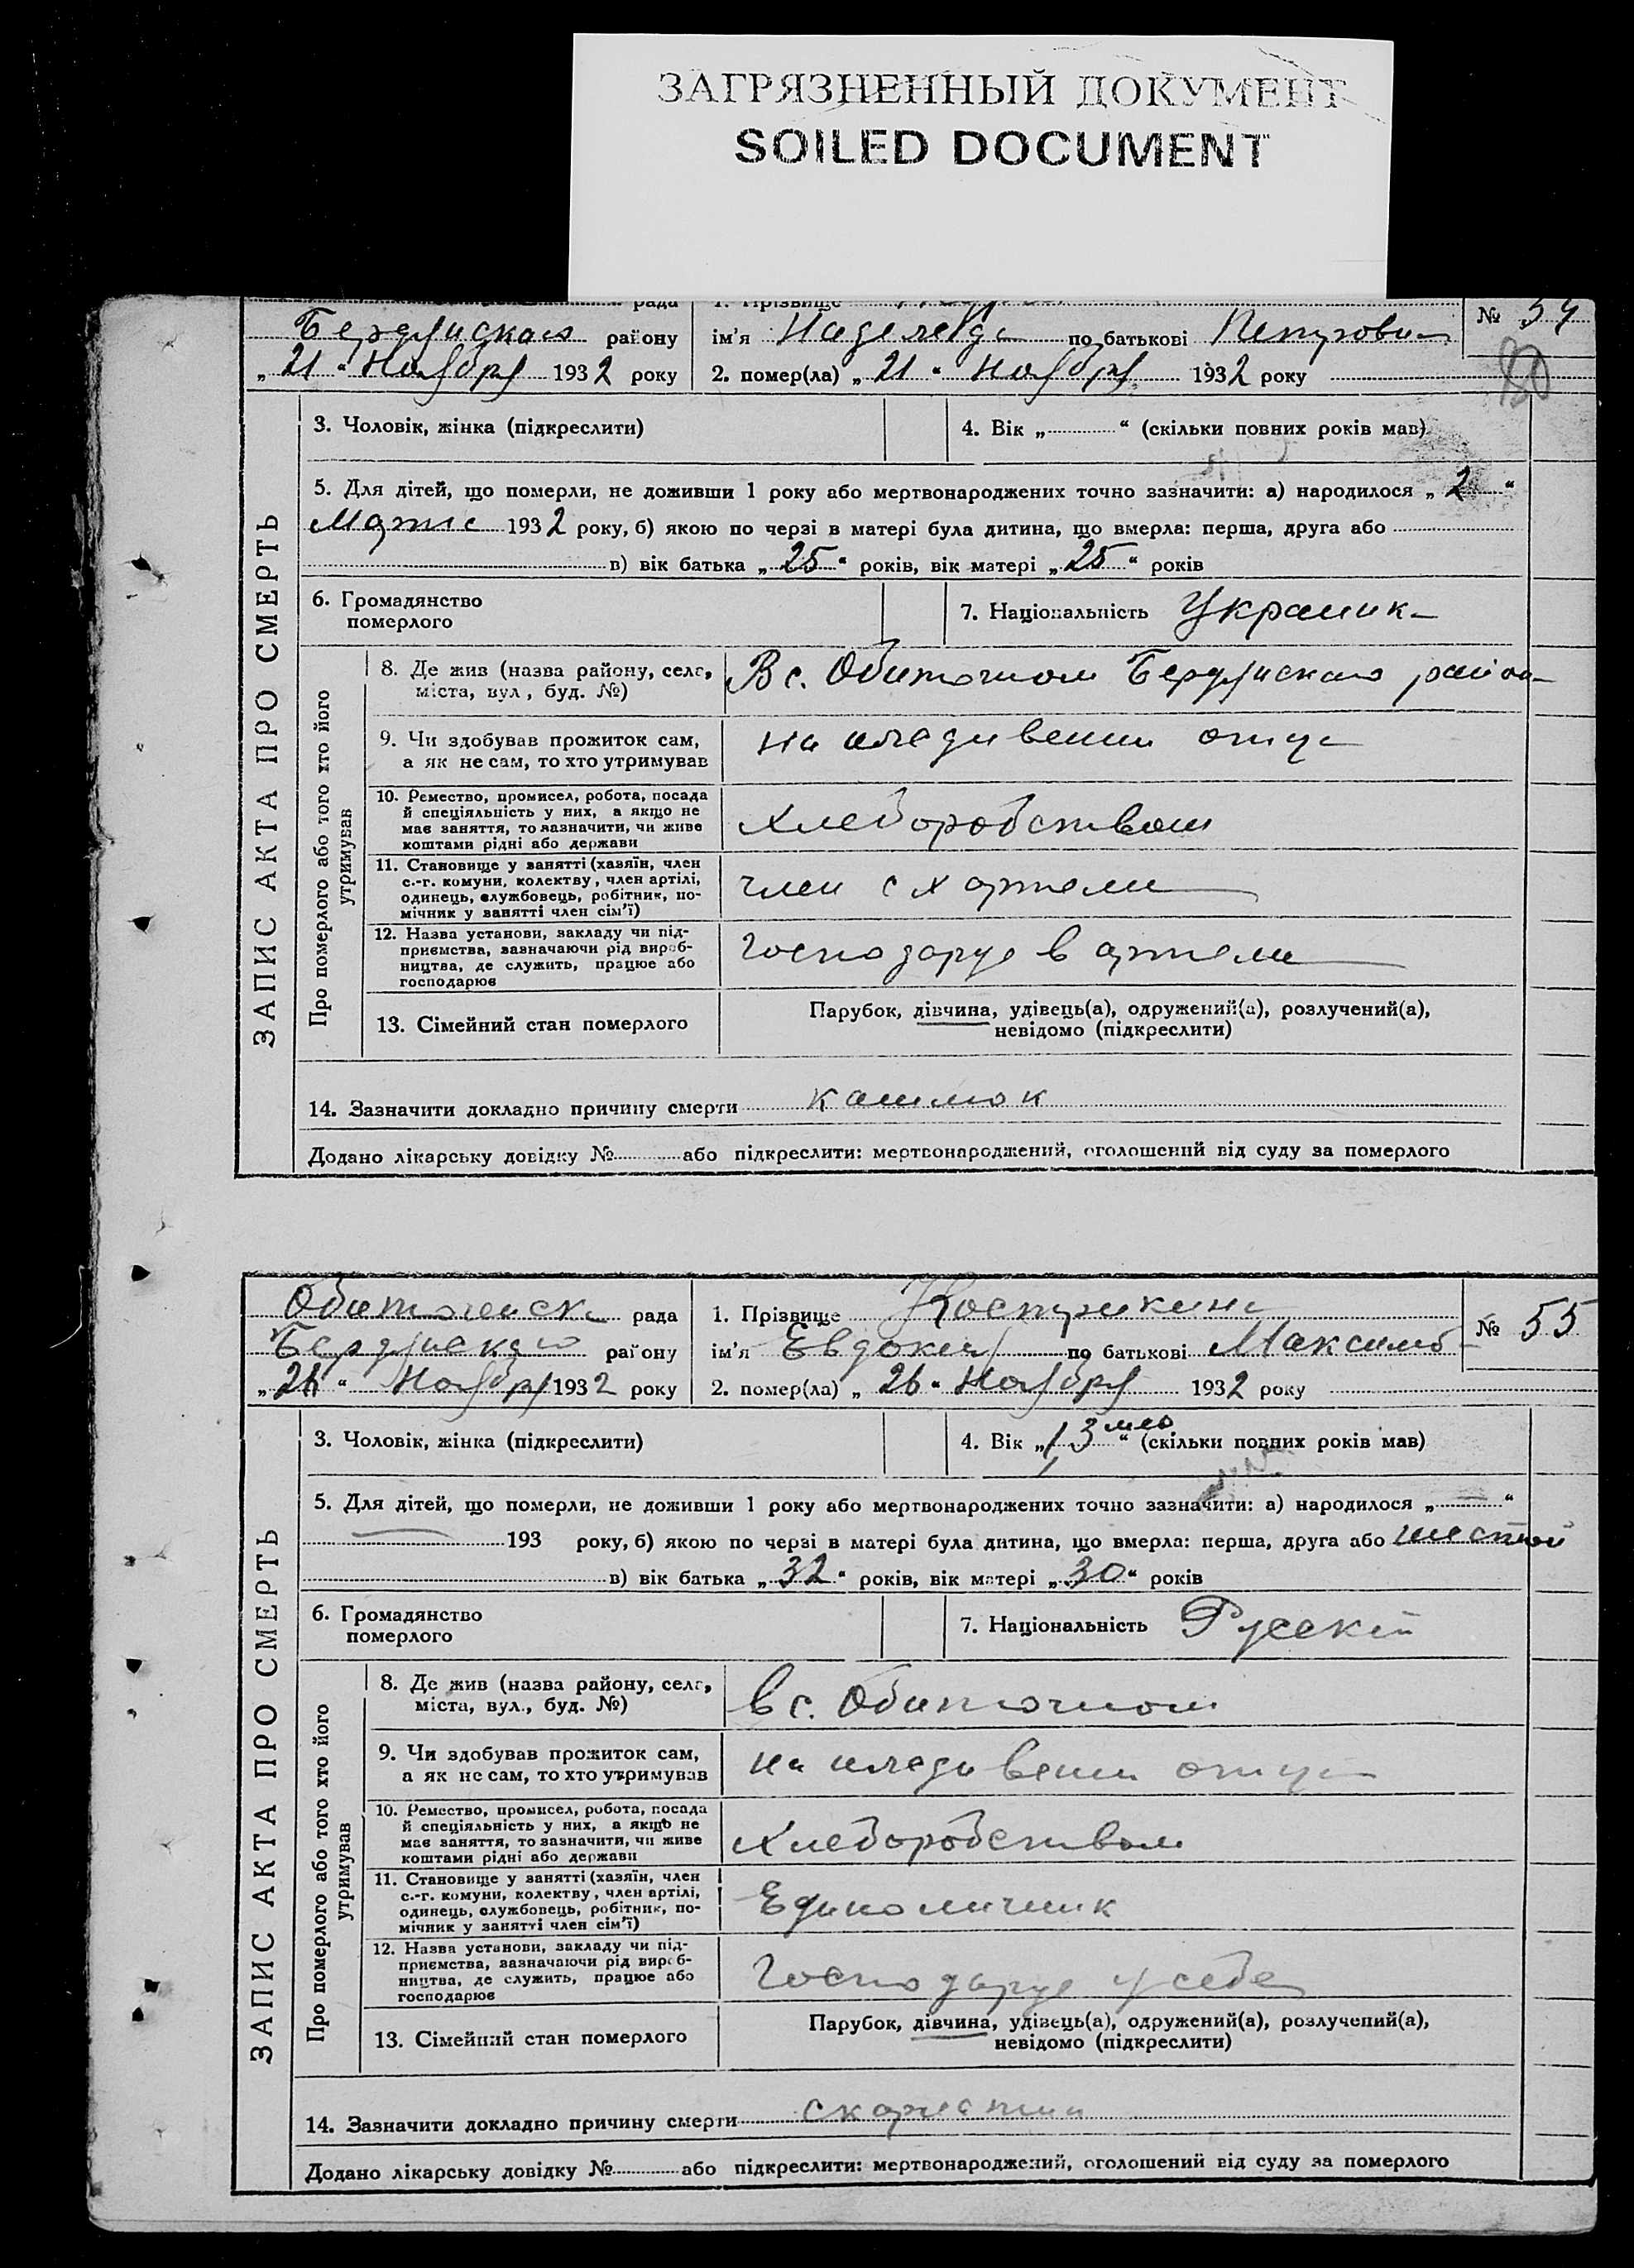 ЗАГРЯЗНЕННЫЙ ДОКУМЕНТ
SOILED DOCUMENT
рада 1. Прізвище № 54
району ім'я Надежда по батькові Петровн
„ 21 “ Ноября 1932 року 2. помер(ла) „ 21 “ Ноября 1932 року
80
ЗАПИС АКТА ПРО СМЕРТЬ
3. Чоловік, жінка (підкреслити) 4. Вік „ “ (скільки повних років мав)
5. Для дітей, що померли, не доживши 1 року або мертвонароджених точно зазначити: а) народилося „ 2 “
Марта 1932 року, б) якою по черзі в матері була дитина, що вмерла: перша, друга або
в) вік батька „ 25 “ років, вік матері „ 25 “ років
6. Громадянство
померлого
7. Національність Украинк
Про померлого або того хто його
утримував
8. Де жив (назва району, села,
міста, вул, буд. №)
В с. Обиточном Бердянского район
9. Чи здобував прожиток сам,
а як не сам, то хто утримував
на иждивении отца
10. Ремество, промисел, робота, посада
й спеціяльність у них, а якщо не
має заняття, то зазначити, чи живе
коштами рідні або держави
Хлеборобством
11. Становище у занятті (хазяїн, член
с.-г. комуни, колективу, член артілі,
одинець, службовець, робітник, по-
мічник у занятті член сім'ї)
член с х артели
12. Назва установи, закладу чи під-
приємства, зазначаючи рід вироб-
ництва, де служить, працює або
господарює
Господарує в артели
13. Сімейний стан померлого
Парубок, дівчина, удівець(а), одружений(а), розлучений(а),
невідомо (підкреслити)
14. Зазначити докладно причину смерти кашлюк
Додано лікарську довідку № або підкреслити: мертвонароджений, оголошений від суду за померлого
Обиточенска рада 1. Прізвище Кострикина № 55
Бердянского району ім'я Евдокия по батькові Максимов
„ 26 “ Ноября 1932 року 2. помер(ла) „ 26 “ Ноября 1932 року
ЗАПИС АКТА ПРО СМЕРТЬ
3. Чоловік, жінка (підкреслити) 4. Вік „ “ (скільки повних років мав)
5. Для дітей, що померли, не доживши 1 року або мертвонароджених точно зазначити: а) народилося „ — “
— 193 року, б) якою по черзі в матері була дитина, що вмерла: перша, друга або шестой
в) вік батька „ 32 “ років, вік матері „ 30 “ років
6. Громадянство
померлого
7. Національність Русский
Про померлого або того хто його
утримував
8. Де жив (назва району, села,
міста, вул., буд. №)
в с. Обиточном
9. Чи здобував прожиток сам,
а як не сам, то хто утримував
на иждивении отца
10. Ремество, промисел, робота, посада
й спеціяльність у них, а якщо не
має заняття, то зазначити, чи живе
коштами рідні або держави
Хлеборобством
11. Становище у занятті (хазяїн, член
с.-г. комуни, колективу, член артілі,
одинець, службовець, робітник, по-
мічник у занятті член сім'ї)
Единоличник
12. Назва установи, закладу чи під-
приємства, зазначаючи рід вироб-
ництва, де служить, працює або
господарює
Господарує у себе
13. Сімейний стан померлого
Парубок, дівчина, удівець(а), одружений(а), розлучений(а),
невідомо (підкреслити)
14. Зазначити докладно причину смерти скарлатин
Додано лікарську довідку № або підкреслити: мертвонароджений, оголошений від суду за померлого